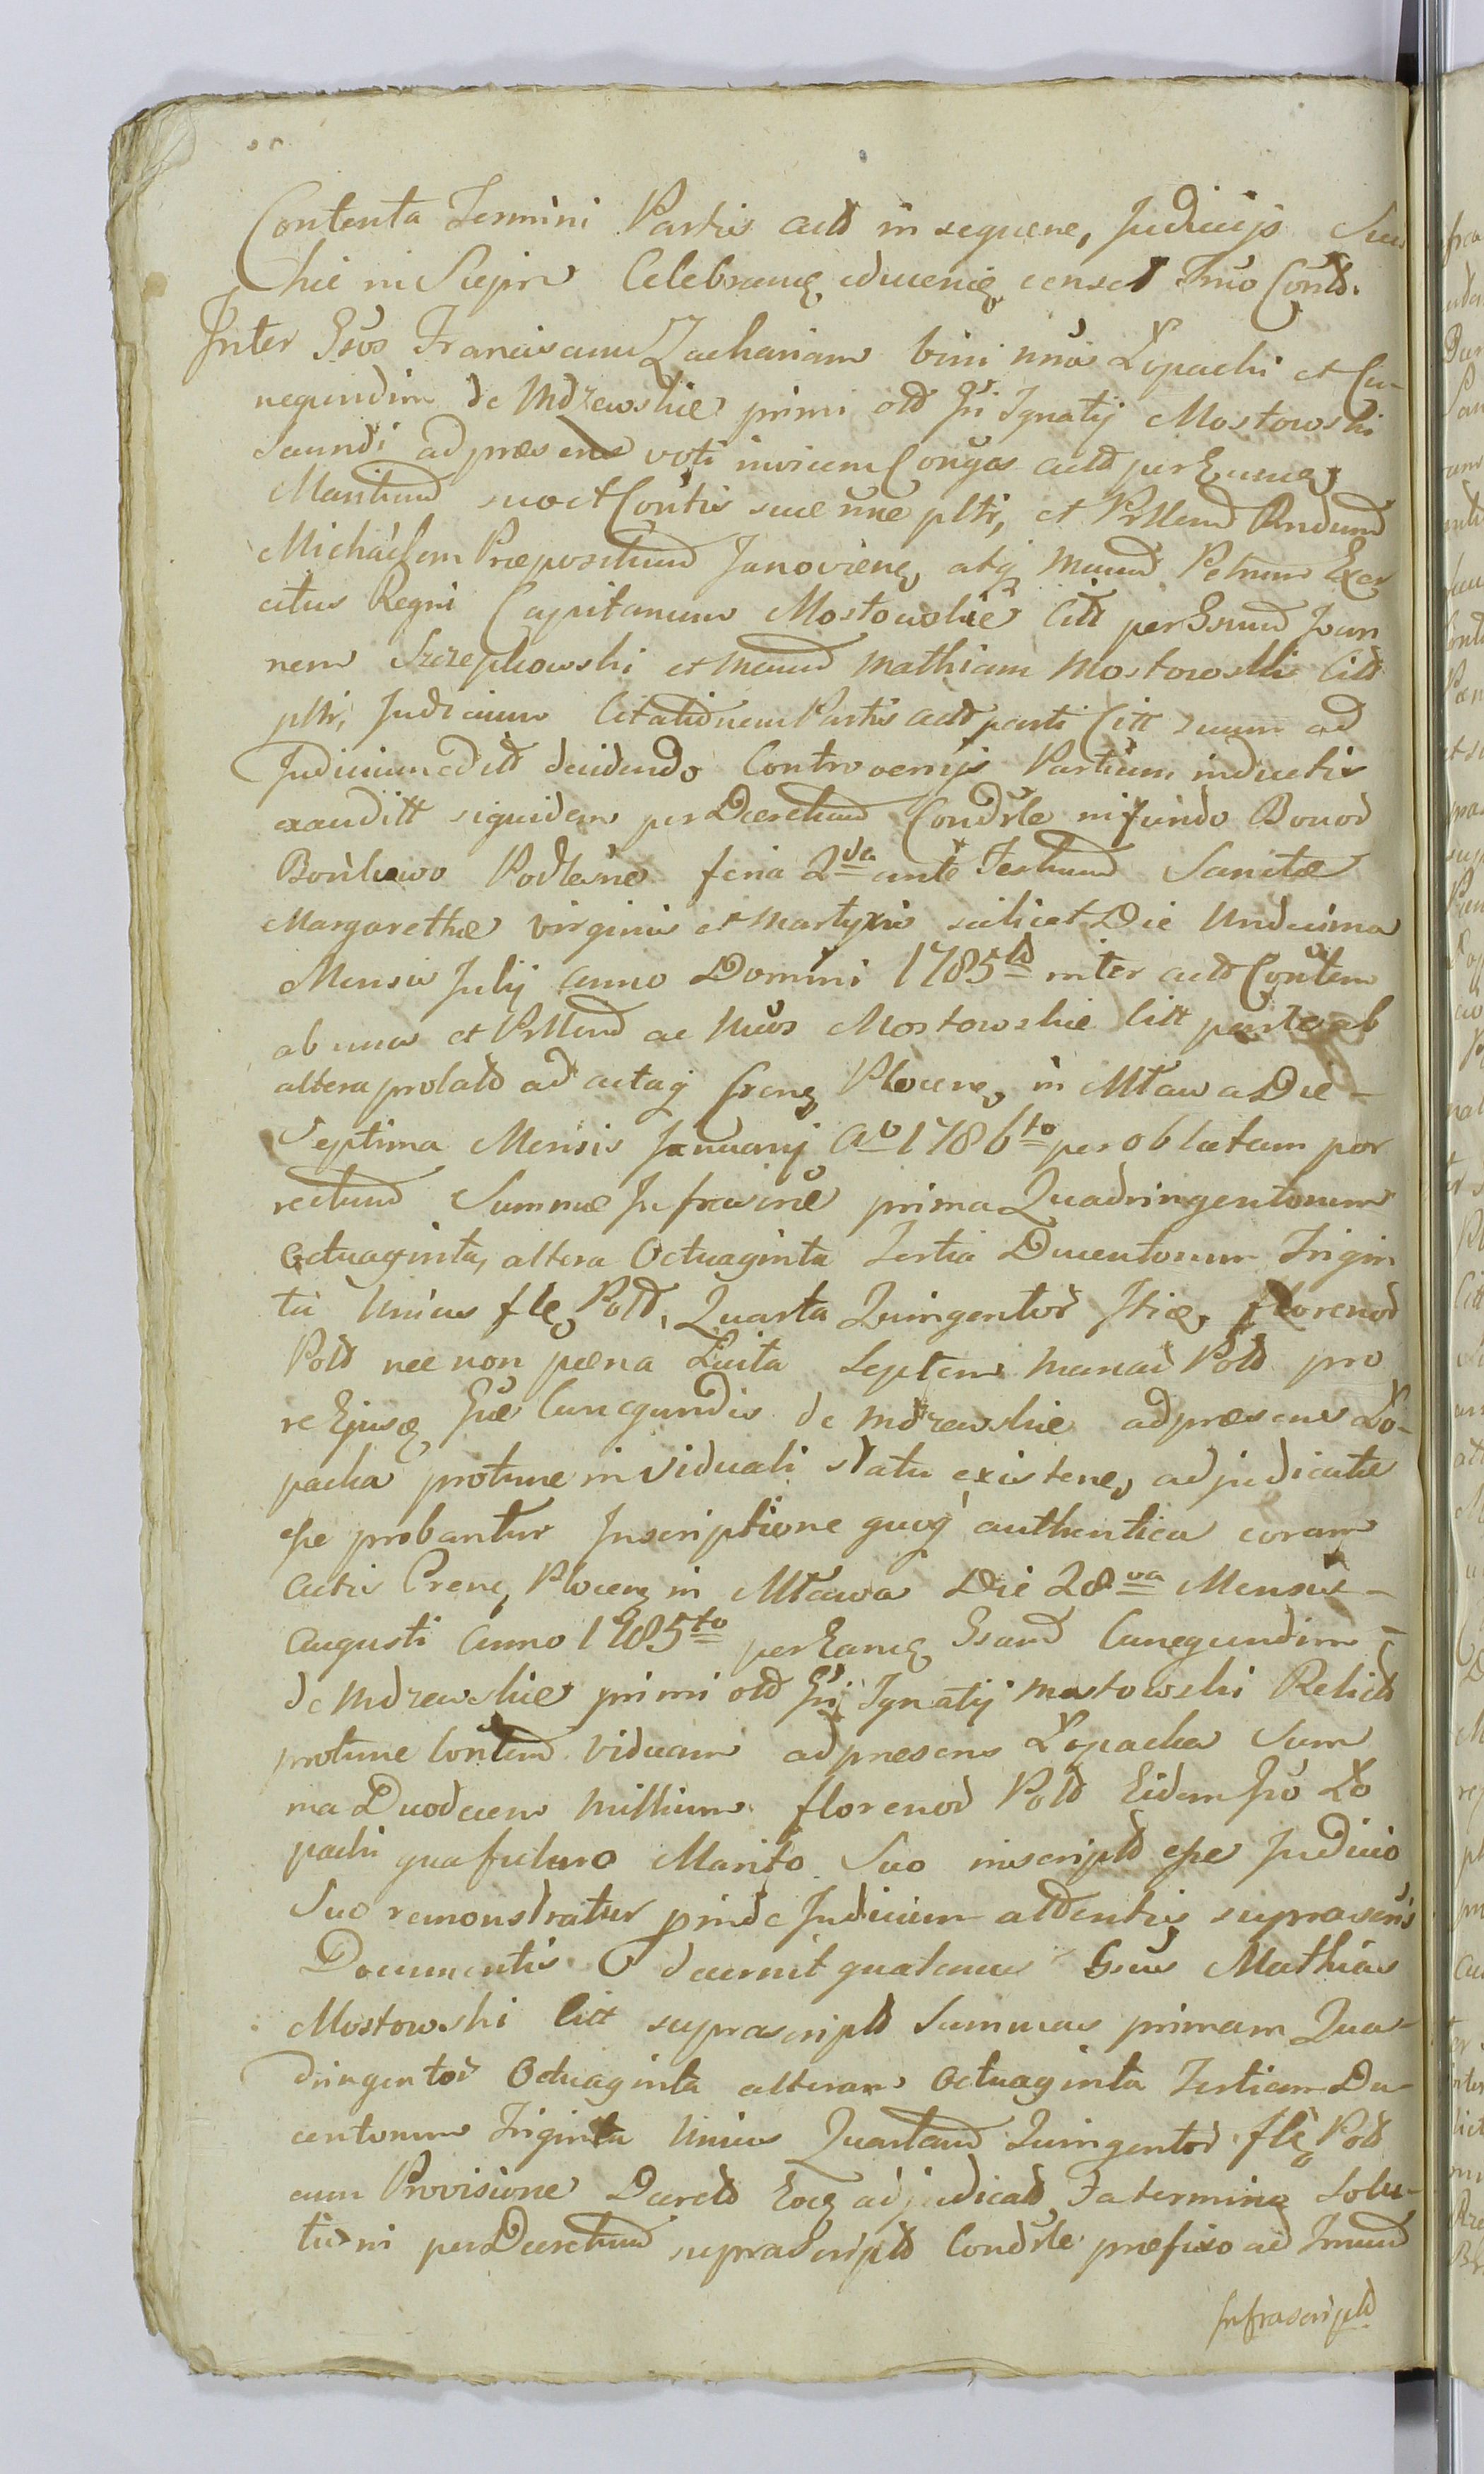 Contenta Termini Partis actt in sequene, Judicijs Suis
hic in Siepr Celebrang advenie censet Imo Contt.
Inter Gsos Franciscum Zachariam bini nnis Łopacki et Cu-
negundim de Mdzewskie primi ott Gsi Ignatij Mostowski
Secundi ad præsens voti invicem Conjges actt per Eumq
Maritum suo et Contis suæ nne pltr, et Prllend Rndum
Michaelem Præpositum Janoviene, atq Mnum Petrum Exer
citus Regni Capitanum Mostowskie Citt per Gsum Joan
nem Szczepkowski et Mnum Mathiam Mostowski Citt
pltr, Judicium Citationem Partis actt parti Citt suum ad
Judicium editt decidendo Controversijs Partium inductis
exauditt siquidem per Decretum Condrle in fundo Bonod
Bońkowo Podleśne feria 2da ante Festum Sanctæ
Margarethæ virginis et Martyris scilicet Die Undecima
Mensis Julij Anno Domini 1785to inter actt Contem
ab una et Prllend ac Mnos Mostowskie Citt partes ab
altera prolatt ad actaq Crene, Plocene, in Mława Die
Septima Mensis January Ao 1786to per oblatam por
rectum Summæ Infrascræ prima Quadringentorum
Octuaginta, altera Octuaginta Tertia Ducentorum Trigin
ta Unius fle, Polt, Quarta Quingentod Itiæ, florenod
Polt nec non pæna Luita Septem Marcad Polt pro
re Ejusq Gsæ Cunegundis de Mdzewskie ad præsens Ło-
packa protunc in viduali statu existene, adjudicatæ
esse probantur Inscriptione quoq authentica coram
Actis Crene, Plocene in Mława Die 28va Mensis
Augusti Anno 1785to per Eamq Gsam Cunegundim
de Mdzewskie primi ott Gsi Ignatij Mostowski Relictt
protunc Contem viduam ad præsens Łopacka Sum
ma Duodecem Millium florenod Polt Eidem Gso Ło
packi qua futuro Marito Suo inscriptt esse Judicio
Suo remonstratur proinde Judicium attentis suprascris
Documentis decernit quatenus Gsus Mathias
Mostowski Citt suprascriptt Summas primam Qua-
dringentod Octuaginta alteram Octuaginta Tertiam Du-
centorum Triginta Unius Quartam Quingentod fle, Polt
cum Provisione Decreto Eoq adjudicatt, a termino Solu-
tioni per Decretum suprascriptt Condrle præfixo ad Imum
Infrascriptt